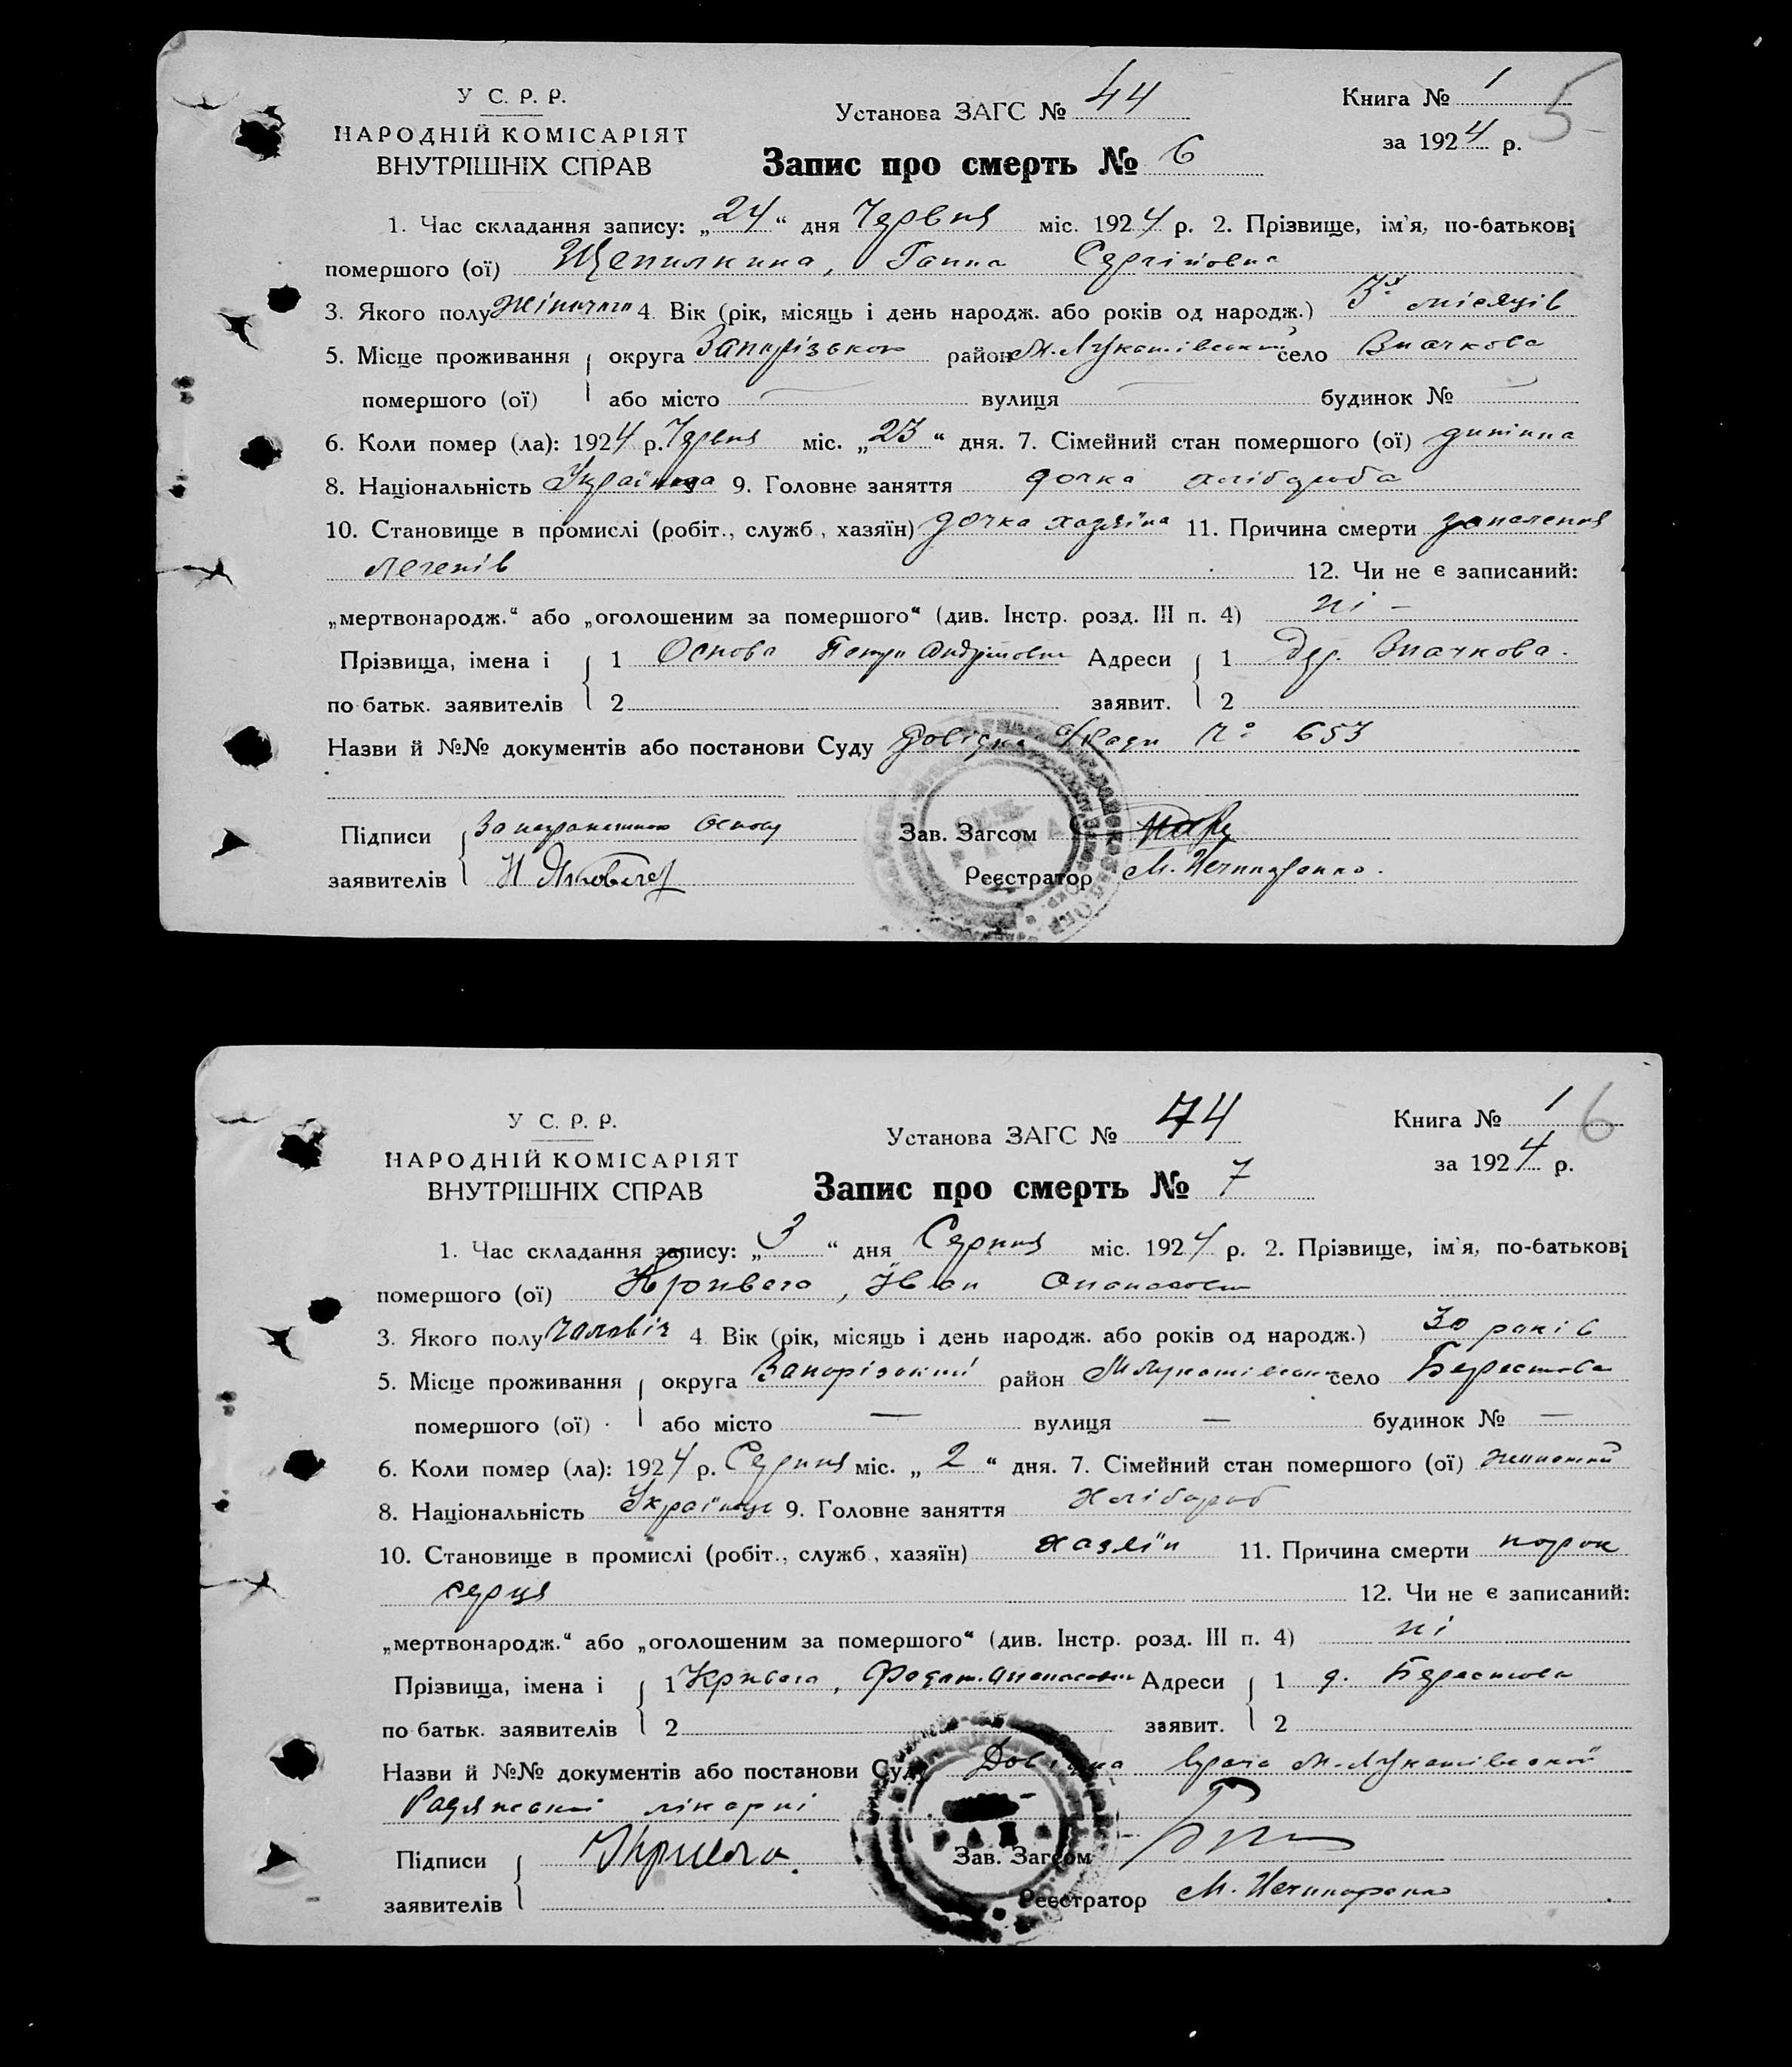 У С. Р. Р.
НАРОДНІЙ КОМІСАРІЯТ
ВНУТРІШНІХ СПРАВ
Установа ЗАГС № 44
Запис про смерть № 6
Книга № 1
5
за 1924 р.
1. Час складання запису: „24“ дня Червня міс. 1924 р. 2. Прізвище, ім'я, по-батькові
помершого (ої) Щепилкина, Ганна Сергіївна
3. Якого полу жіночого 4. Вік (рік, місяць і день народж. або років од народж.) 3х місяців
5. Місце проживання округа Запорізького район М.Лукашівський село Значкова
помершого (ої) або місто — вулиця — будинок № —
6. Коли помер (ла): 1924 р. Червня міс. „23“ дня. 7. Сімейний стан помершого (ої) дитина
8. Національність Українка 9. Головне заняття дочка хлібороба
10. Становище в промислі (робіт., служб., хазяїн) дочка хазяїна 11. Причина смерти запалення
легенів 12. Чи не є записаний:
„мертвонародж.“ або „оголошеним за помершого“ (див. Інстр. розд. III п. 4) ні —
Прізвища, імена і 1 Основа Петро Андрійович Адреси 1 Дер. Значкова.
по батьк. заявителів 2 заявит. 2
Назви й №№ документів або постанови Суду Довідка С/Ради № 653
Підписи За неграмотного Основу Зав. Загсом
заявителів Реєстратор М. Нечипоренко.
У С. Р. Р.
НАРОДНІЙ КОМІСАРІЯТ
ВНУТРІШНІХ СПРАВ
Установа ЗАГС № 44
Запис про смерть № 7
Книга № 1
6
за 1924 р.
1. Час складання запису: „3“ дня Серпня міс. 1924 р. 2. Прізвище, ім'я, по-батькові
помершого (ої) Кривега, Іван Опанасович
3. Якого полу чоловіч 4. Вік (рік, місяць і день народж. або років од народж.) 30 років
5. Місце проживання округа Запорізький район М.Лукашівський село Берестова
помершого (ої) або місто — вулиця — будинок № —
6. Коли помер (ла): 1924 р. Серпня міс. „2“ дня. 7. Сімейний стан помершого (ої) жинатий
8. Національність Українець 9. Головне заняття Хлібороб
10. Становище в промислі (робіт., служб., хазяїн) хазяїн 11. Причина смерти порок
серця 12. Чи не є записаний:
„мертвонародж.“ або „оголошеним за помершого“ (див. Інстр. розд. III п. 4) ні
Прізвища, імена і 1 Кривега, Федот Опанасович Адреси 1 д. Берестова
по батьк. заявителів 2 заявит. 2
Назви й №№ документів або постанови Суду Довідка врача М.Лукашівської
Радянської лікарні
РАДА
Підписи Кривега. Зав. Загсом
заявителів Реєстратор М. Нечипоренко